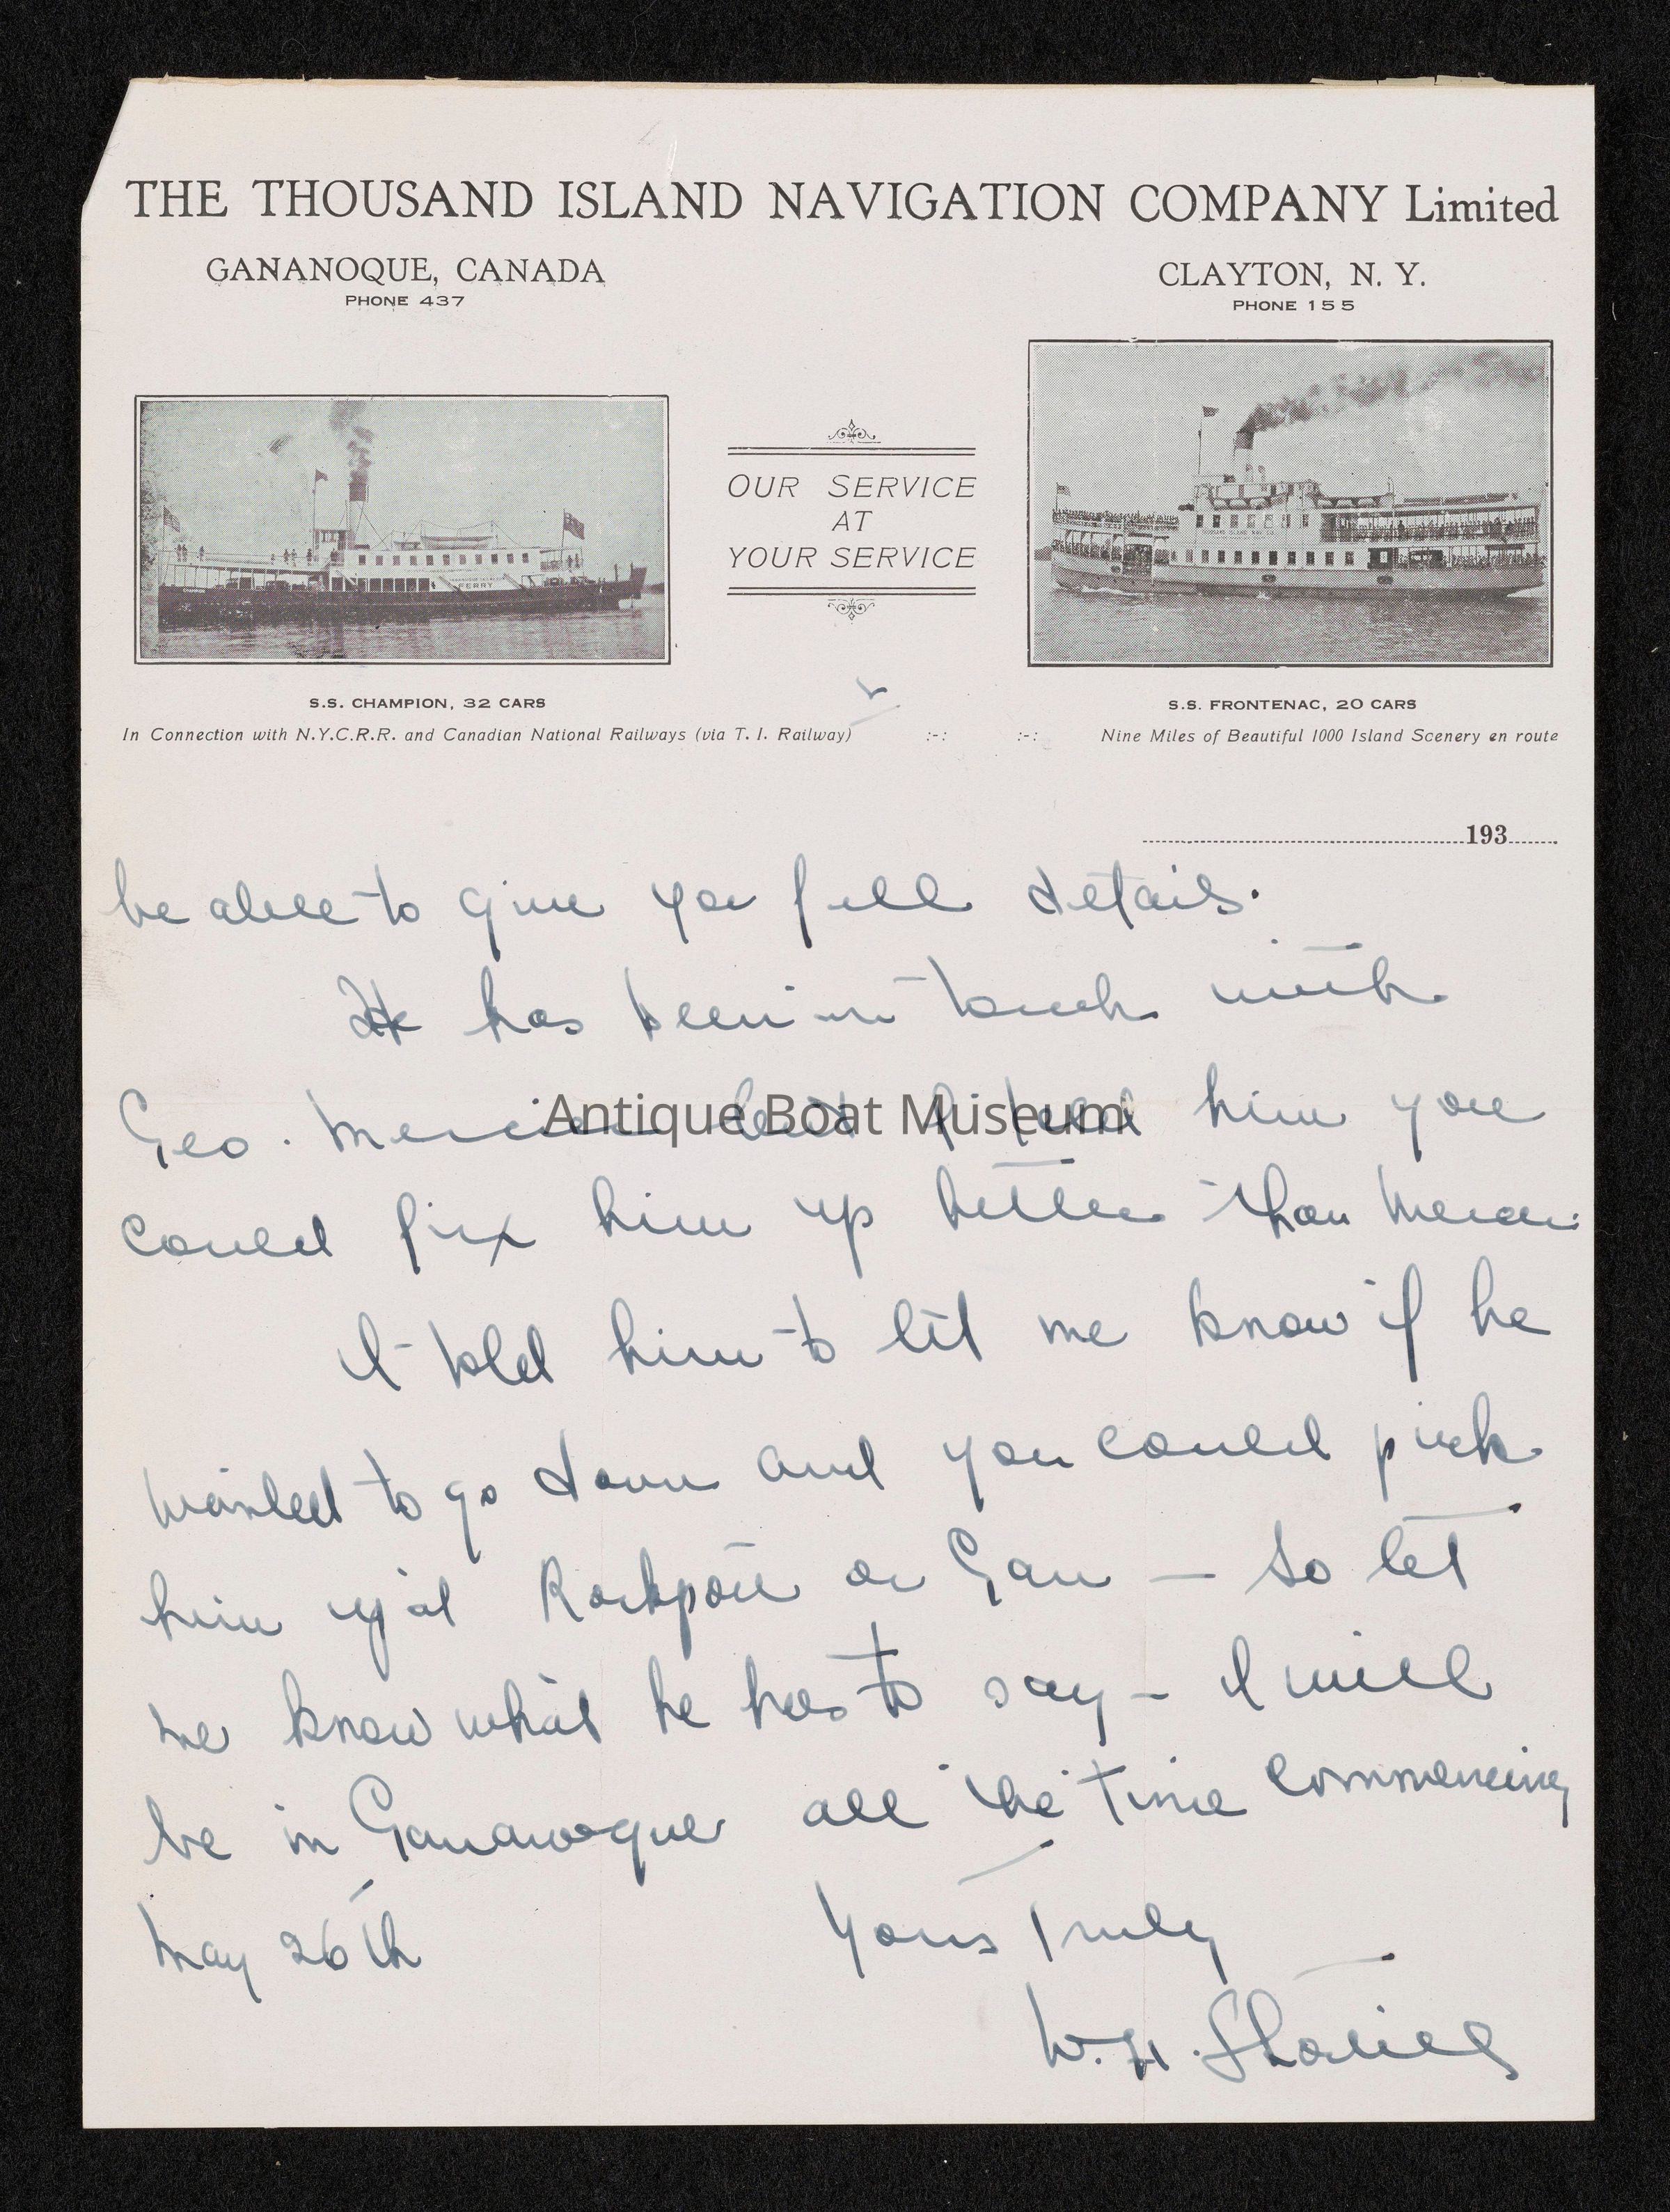 THE THOUSAND ISLAND NAVIGATION COMPANY Limited
GANANOQUE, CANADA
PHONE 437
CLAYTON, N. Y.
PHONE 155
OUR SERVICE
AT
YOUR SERVICE
FERRY
S.S. CHAMPION, 32 CARS
S.S. FRONTENAC, 20 CARS
In Connection with N.Y.C.R.R. and Canadian National Railways (via T. I. Railway) :-: :-: Nine Miles of Beautiful 1000 Island Scenery en route
193
be able to give you full details.
He has been in touch with
Geo. Mercier but I told him you
could fix him up better than Mercier
I told him to let me know if he
wanted to go down and you could pick
him up at Rockport or Gan — So let
me know what he has to say — I will
be in Gananoque all the time commencing
May 26th
Yours Truly
W. H.
Antique Boat Museum